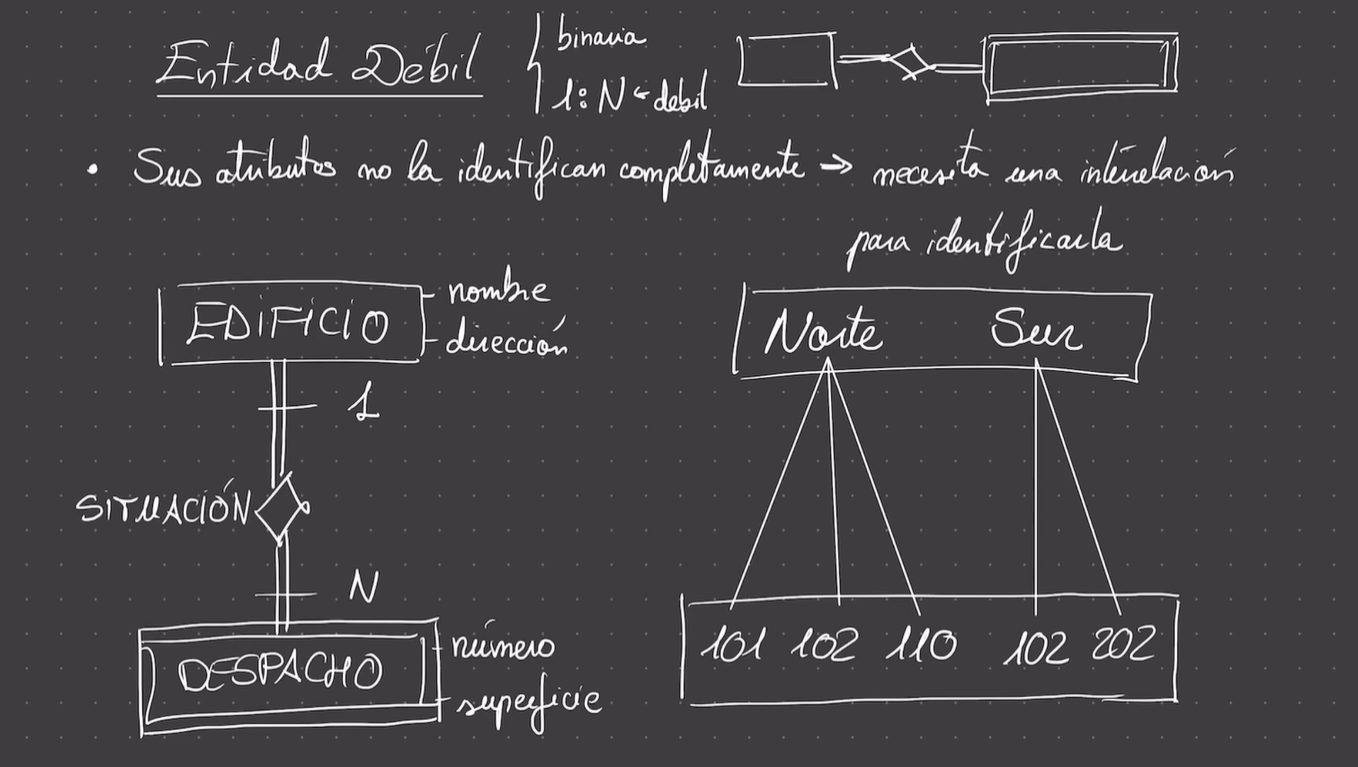 Entidad Débil
binaria
1:N ← debil
• Sus atributos no la identifican completamente → necesita una interrelación
para identificarla
EDIFICIO
nombre
dirección
1
SITUACIÓN
N
DESPACHO
número
superficie
Norte Sur
101 102 110 102 202